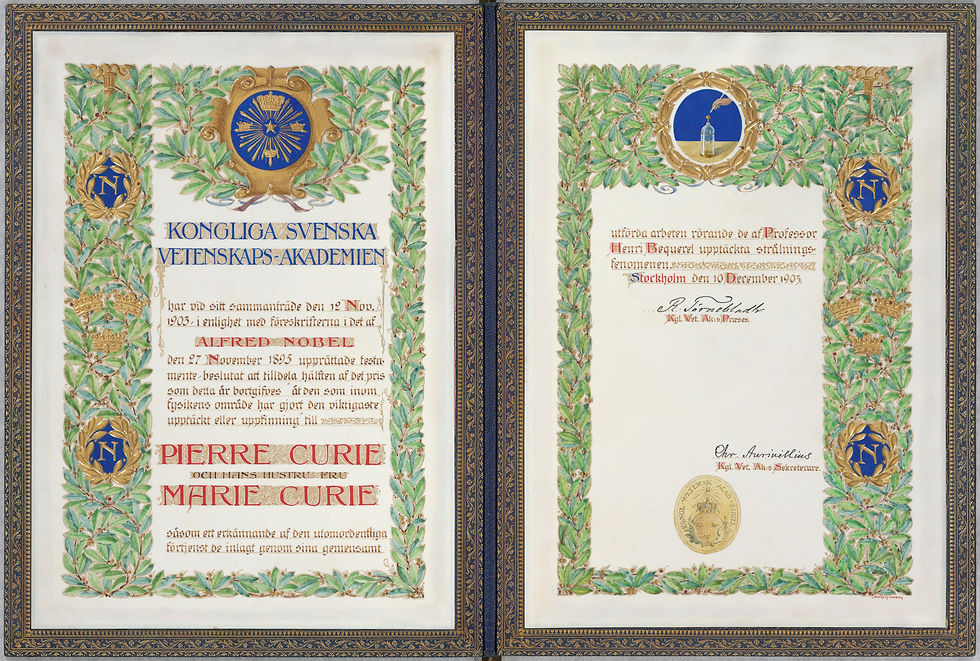 KONGLIGA SVENSKA
VETENSKAPS-AKADEMIEN
har vid sitt sammanträde den 12 Nov.
1903, i enlighet med föreskrifterna i det af
ALFRED NOBEL
den 27 November 1895 upprättade testa-
mente, beslutat att tilldela hälften af det pris
som detta år bortgifves åt den som inom
fysikens område har gjort den viktigaste
upptäckt eller uppfinning till
PIERRE CURIE
OCH HANS HUSTRU FRU
MARIE CURIE
såsom ett erkännande af den utomordentliga
förtjenst de inlagt genom sina gemensamt
N
N
utförda arbeten rörande de af Professor
Henri Bequerel upptäckta strålnings-
fenomenen
Stockholm den 10 December 1903.
R. Törnebladh
Kgl. Vet. Ak:s Præses.
Chr. Aurivillius
Kgl. Vet. Ak:s Sekreterare.
N
N